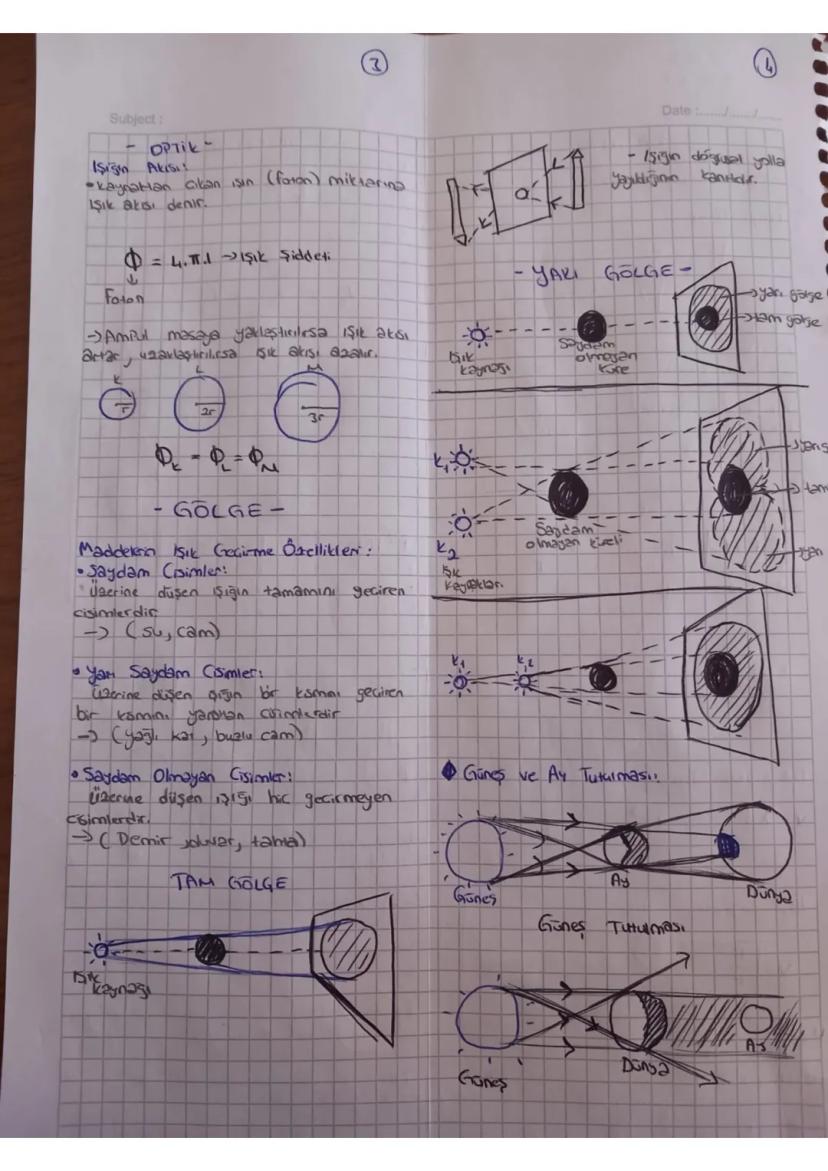 3
Subject :
- OPTİK -
Işığın Akısı:
• kaynaktan çıkan ışın (foton) miktarına
ışık akısı denir.
Φ = 4.π.I → Işık Şiddeti
↓
Foton
→ Ampul masaya yaklaştırılırsa ışık akısı
artar, uzaklaştırılırsa ışık akısı azalır.
K L M
r 2r 3r
ΦK = ΦL = ΦM
- GÖLGE -
Maddelerin Işık Geçirme Özellikleri :
• Saydam Cisimler:
üzerine düşen ışığın tamamını geçiren
cisimlerdir
→ (su, cam)
• Yarı Saydam Cisimler:
üzerine düşen ışığın bir kısmını geçiren
bir kısmını yansıtan cisimlerdir
→ (yağlı kat, buzlu cam)
• Saydam Olmayan Cisimler:
üzerine düşen ışığı hiç geçirmeyen
cisimlerdir.
→ (Demir, duvar, tahta)
TAM GÖLGE
Işık
kaynağı
4
Date :....../....../......
- Işığın doğrusal yolla
yayıldığının kanıtıdır.
- YARI GÖLGE -
→ yarı gölge
→ tam gölge
Işık
kaynağı
Saydam
olmayan
küre
K1
K2
Işık
kaynakları
Saydam
olmayan küre
→ yarı
→ tam
→ yarı
K1 K2
Güneş ve Ay Tutulması:
Güneş
Ay
Dünya
Güneş Tutulması
Güneş
Dünya
Ay